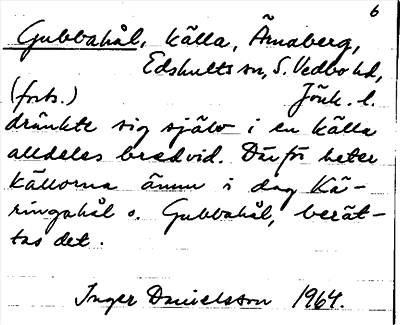 6
Gubbahål, källa, Ärnaberg,
Edshults sn, S. Vedbo hd,
(forts.) Jönk. l.
dränkte sig själv i en källa
alldeles bredvid. Därför heter
källorna ännu i dag Kä-
ringahål o. Gubbahål, berät-
tas det.
Inger Danielsson 1964.